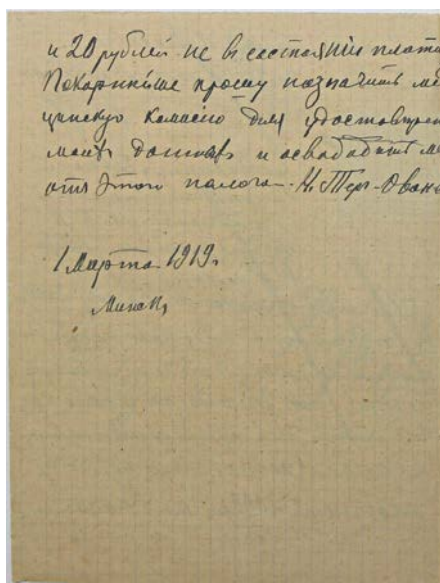 и 20 рублей не в состоянии плати
Покорнѣйше прошу назначить ме
цинскую комисию для удостовѣрен
моихъ и освободить м
отъ этого налога. Н. Теръ-Ован
1 Марта 1919.